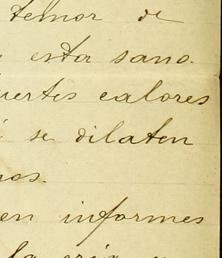 temor de
esta sano.
uertes calores
se dilaten
nos.
en informes
la cria y